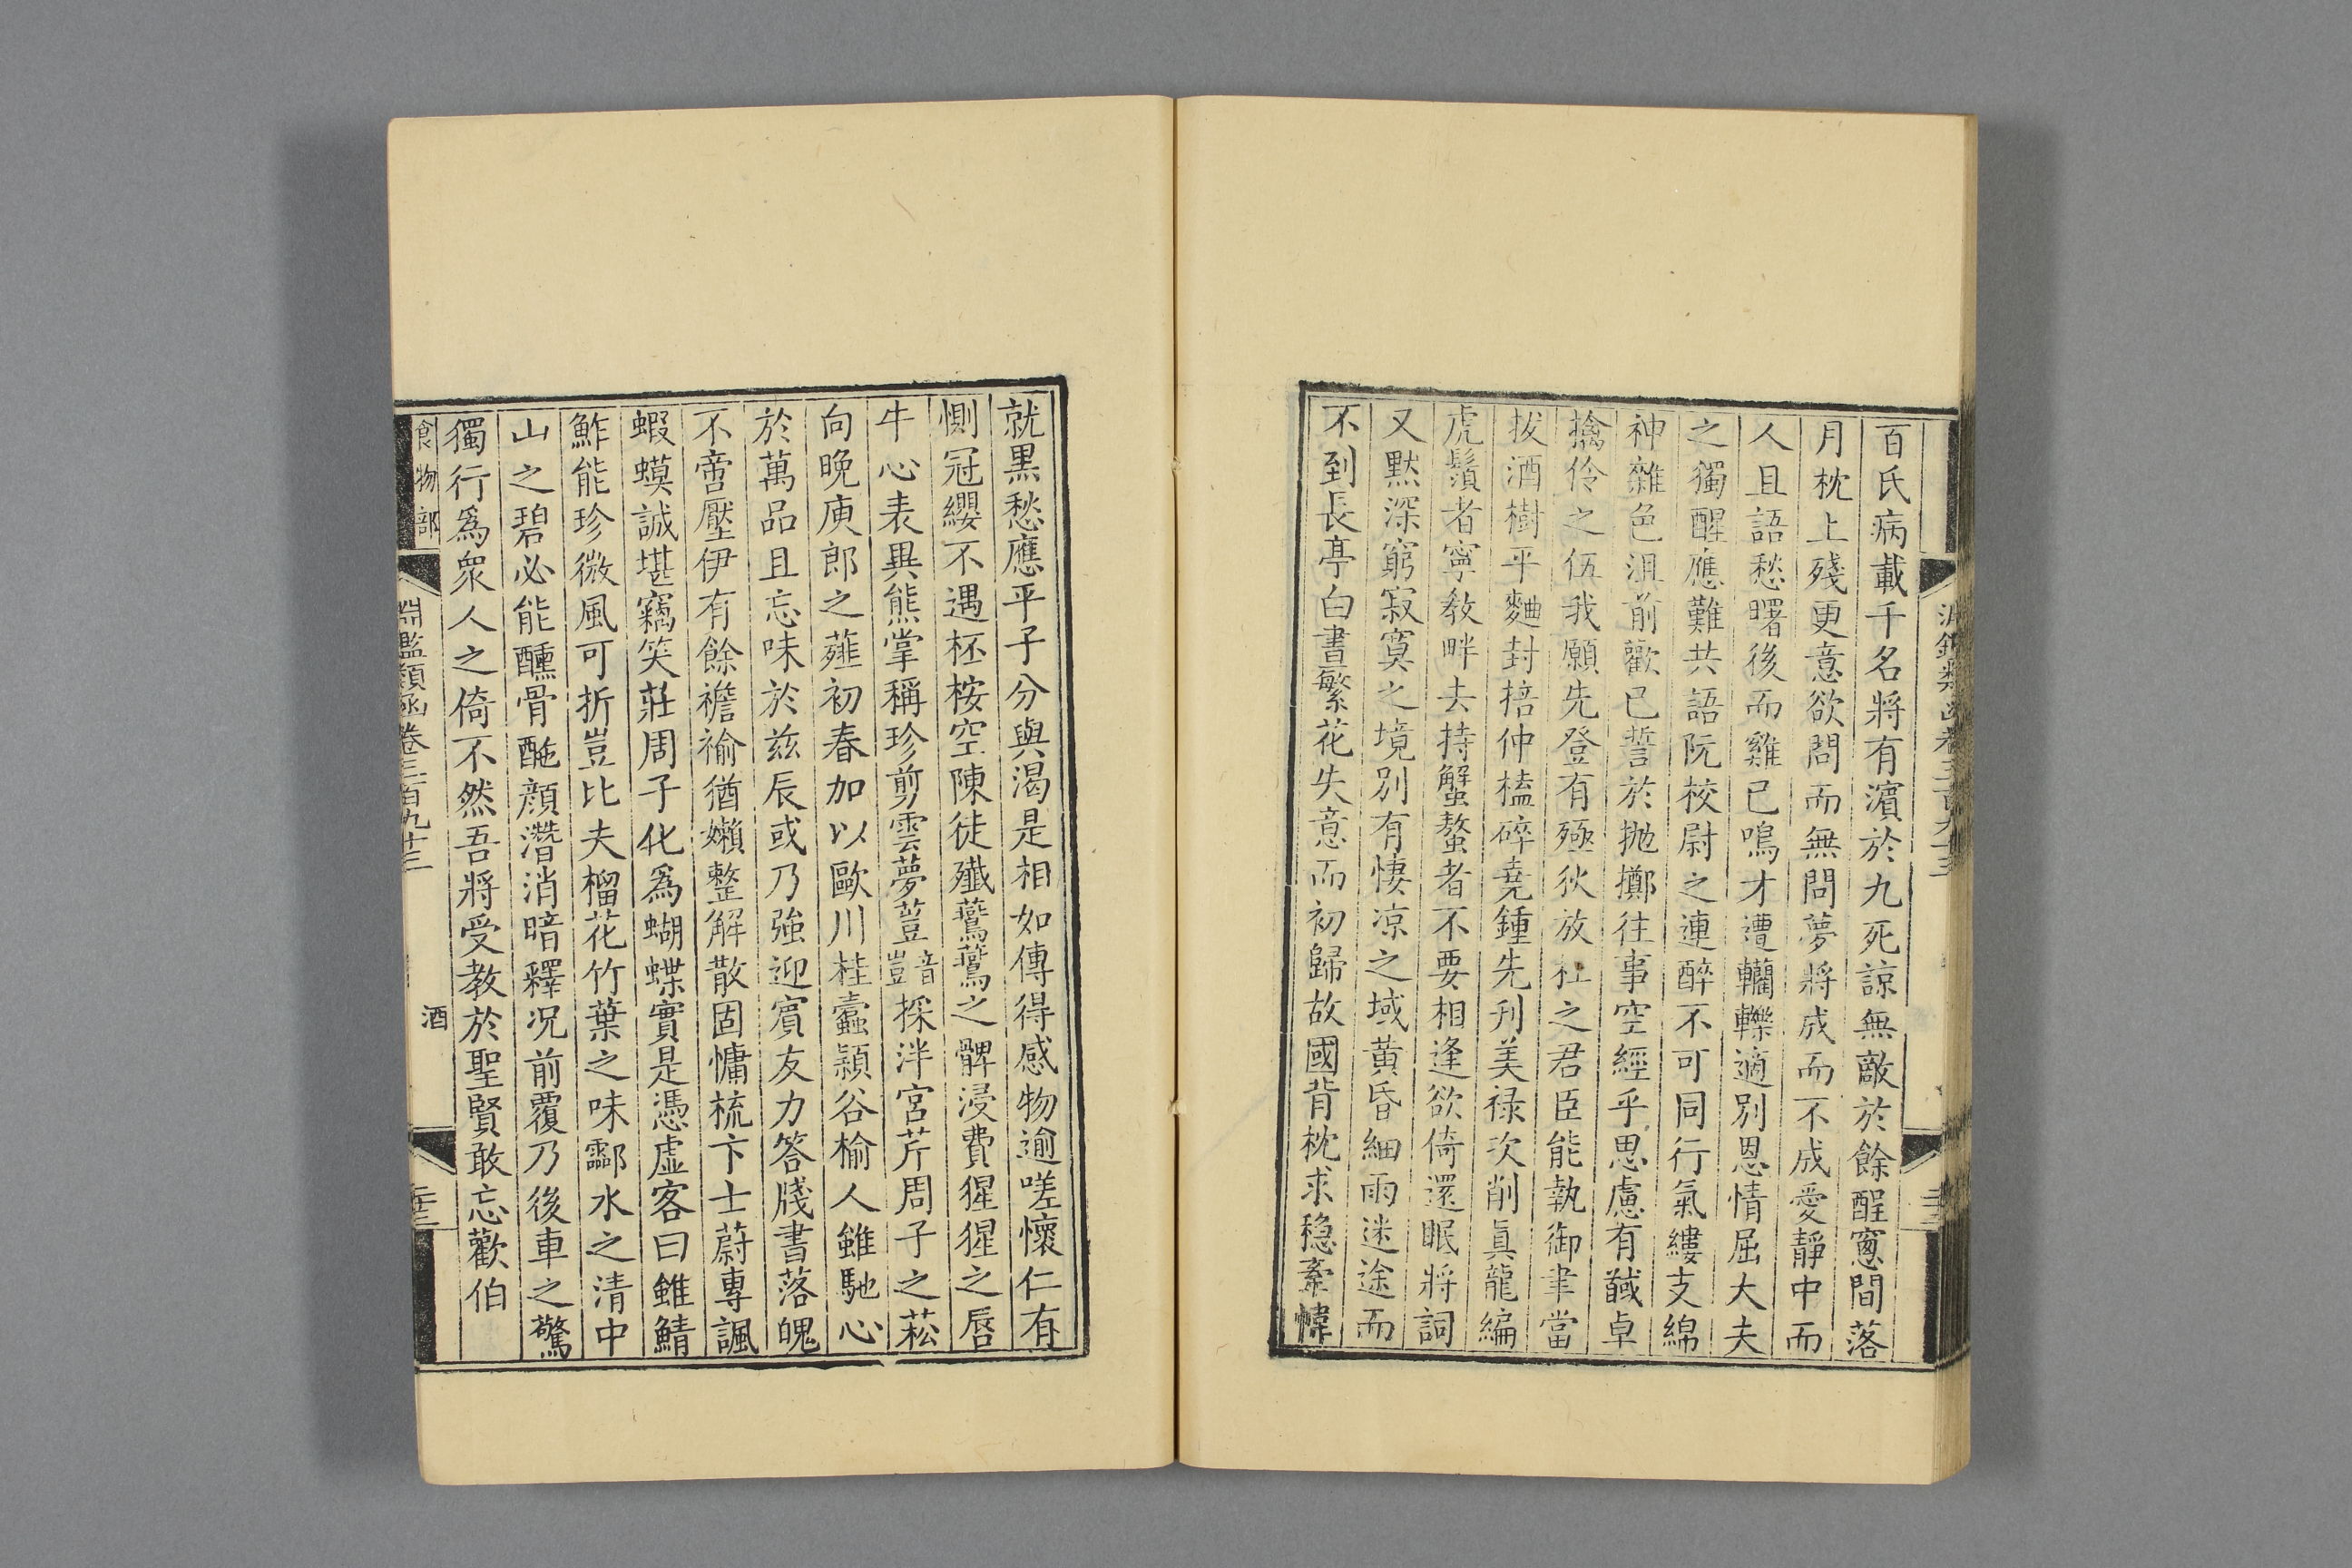 百氏病載千名將有濵於九死諒無敵於餘酲窻間落
月枕上殘更意欲問而無問夢將成而不成愛靜中而
人且語愁曙後而雞已鳴才遭轥轢適別恩情屈大夫
之獨醒應難共語阮校尉之連醉不可同行氣縷支綿
神雜色沮前歡已誓於抛擲往事空經乎思慮有馘卓
擒伶之伍我願先登有殛狄放杜之君臣能執御聿當
拔酒樹平麯封掊仲榼碎堯鍾先刋美禄次削眞龍編
虎鬚者寜敎畔去持蟹螯者不要相逢欲倚還眠將詞
又黙深窮寂寞之境別有悽凉之域黃昏細雨迷途而
不到長亭白晝繁花失意而初歸故國背枕求穏牽幃
就黒愁應平子分與渴是相如傳得感物逾嗟懷仁有
惻冠纓不遇柸桉空陳徒殲鷰鷰之髀浸費猩猩之唇
牛心表異熊掌稱珍剪雲夢䔇音豈採泮宮芹周子之菘
向晚庾郎之薤初春加以歐川桂蠹潁谷榆人雖馳心
於萬品且忘味於兹辰或乃強迎賔友力答牋書落魄
不啻壓伊有餘襜褕猶嬾整解散固慵梳卞士蔚專諷
蝦蟆誠堪竊笑莊周子化爲蝴蝶實是憑虛客曰雖鯖
鮓能珍微風可折豈比夫榴花竹葉之味酃水之清中
山之碧必能醺骨酡顔潛消暗釋况前覆乃後車之驚
獨行爲衆人之倚不然吾將受教於聖賢敢忘歡伯
食物部 淵鑑類函卷三百九十三 酒 二十三